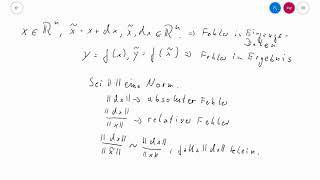 x ∈ ℝⁿ, x̃ = x + dx, x̃, dx ∈ ℝⁿ ⇒ Fehler in Eingangs-
Daten
y = f(x), ỹ = f(x̃) ⇒ Fehler in Ergebnis
Sei ‖·‖ eine Norm.
‖dx‖ → absoluter Fehler
‖dx‖/‖x‖ → relativer Fehler
‖dx‖/‖x̃‖ ~ ‖dx‖/‖x‖, falls ‖dx‖ klein.